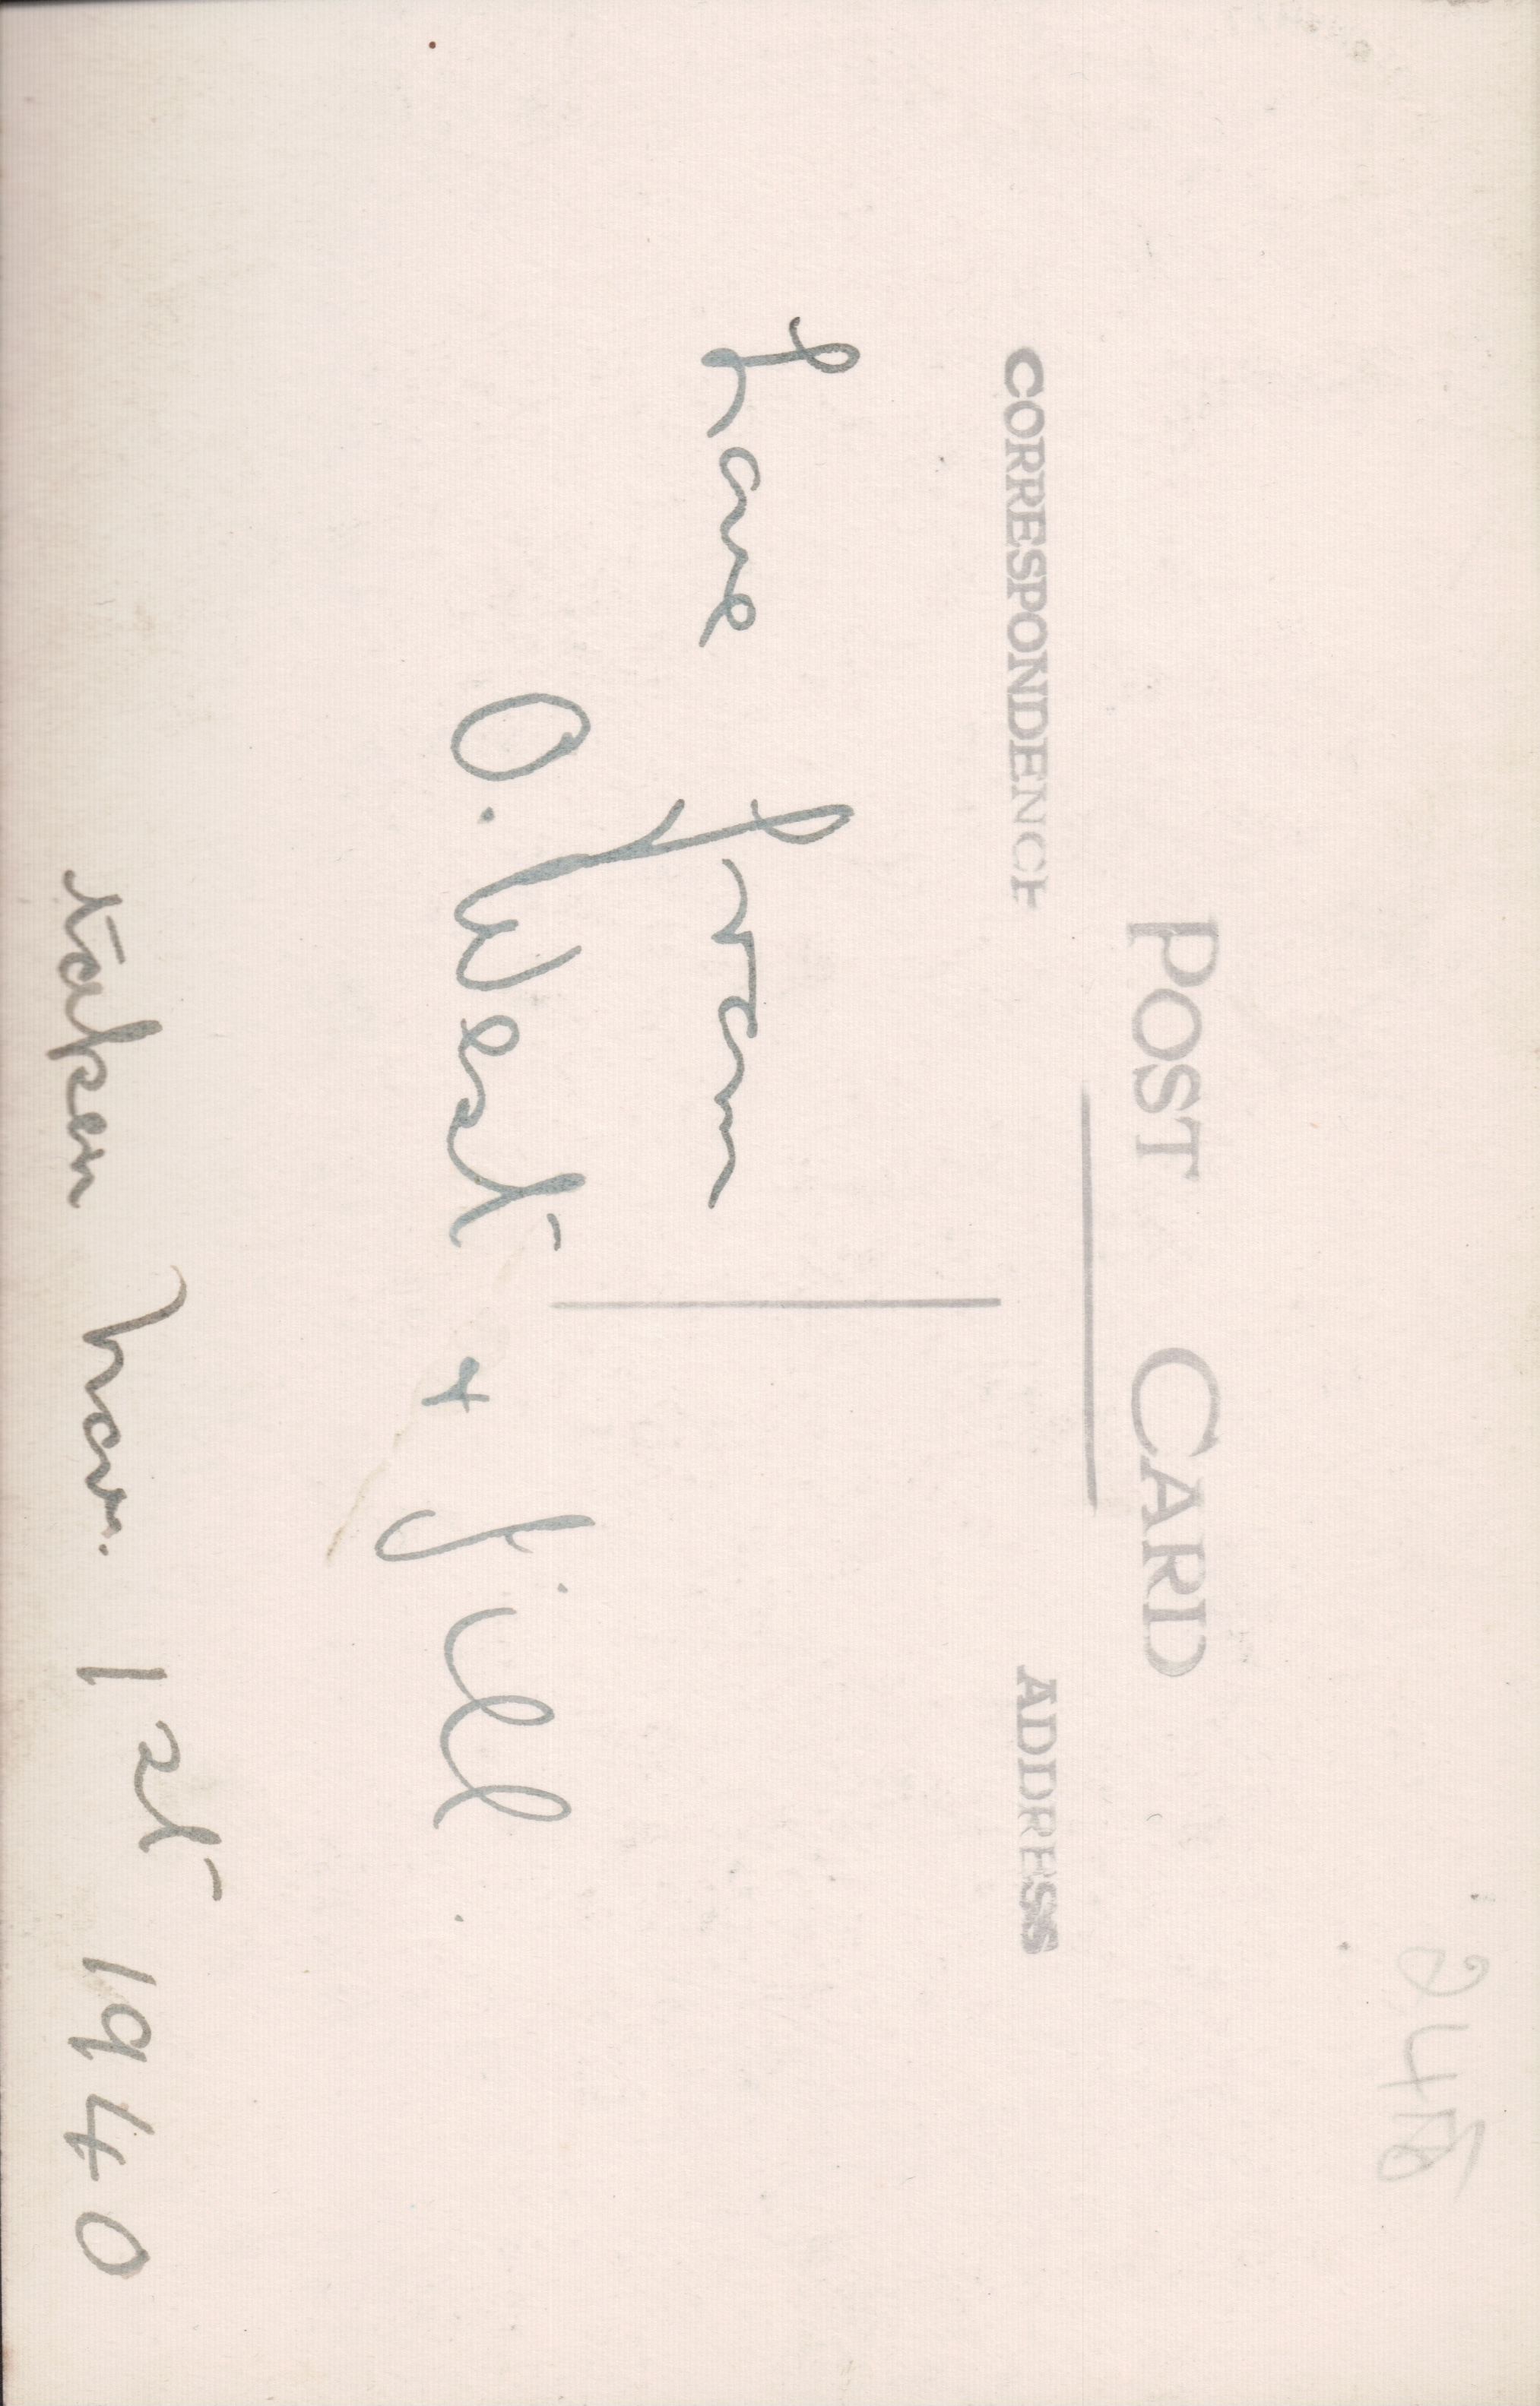 POST CARD
CORRESPONDENCE
ADDRESS
Love from
O. West + Jill
taken Nov. 1st 1940